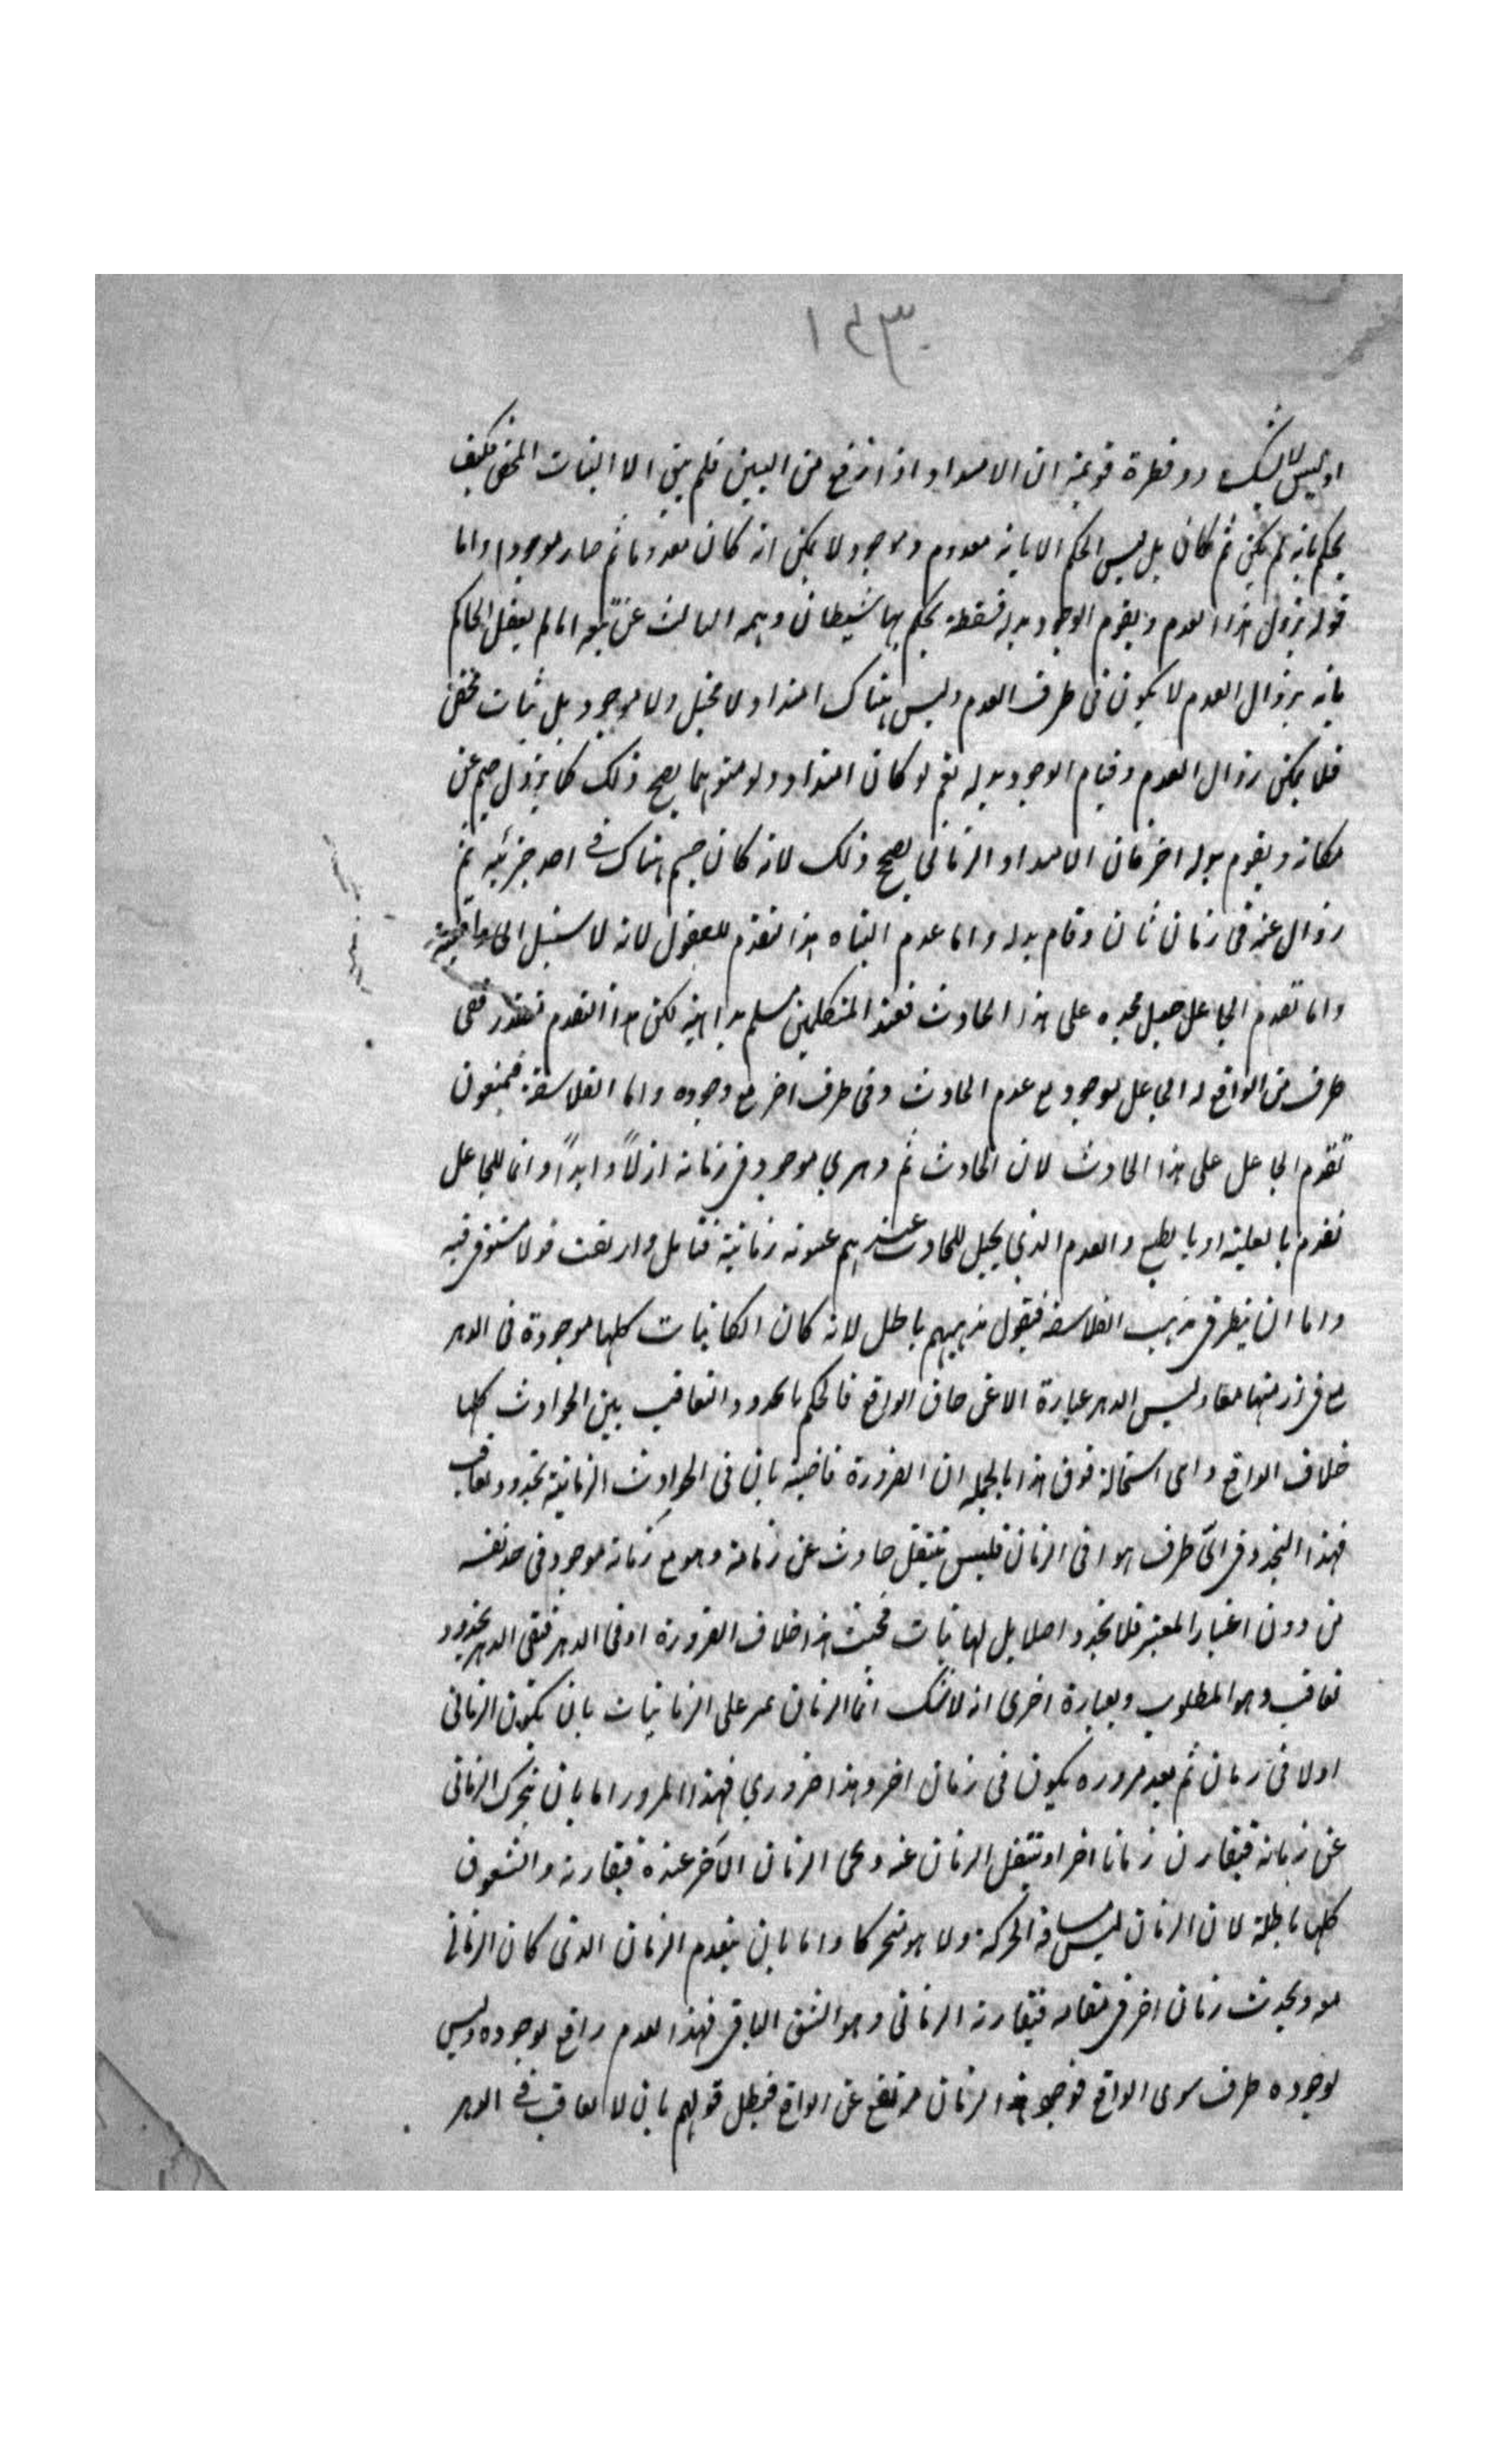 ١٤٣
او ليس لا يشك ذو فطرة قويمة ان الامتداد اذا ارتفع من البين فلم يبق الا الثبات المحض فكيف
يحكم بانه لم يكن ثم كان بل ليس الحكم الا بانه معدوم وموجود لا يمكن انه كان معدوما ثم صار موجودا واما
قوله يزول هذا العدم ويقوم الوجود بدله فسفسطة يحكم بها شيطان وهمه الناكث عن اما لم يعقل الحاكم
بانه بزوال العدم لا يكون فى طرف العدم وليس هناك امتداد لا مخيل ولا موجود بل ثبات محض
فلا يمكن زوال العدم وقيام الوجود بدله نعم لو كان امتداد ولو متوهما يصح ذلك كما يزول جسم عن
مكانه ويقوم بدله اخر فان الامتداد الزمانى يصح ذلك لانه كان جسم هناك فى احد جزئيه ثم
زوال عنه فى زمان ثان وقام بدله واما عدم اثبات هذا التقدم للعقول لانه لا سبيل الى
واما تقدم الجاعل جل مجده على هذا الحادث فعند المتكلمين مسلم بداهية لكن هذا التقدم ففى
طرف من الواقع له الجاعل موجود مع عدم الحادث وفى طرف اخر مع وجوده واما الفلاسفة فيمنعون
تقدم الجاعل على هذا الحادث لان الحادث ثم دهرى موجود فى زمانه ازلاً وابداً وانما للجاعل
تقدم بالعلية او بالطبع والعدم الذى يخيل للحادث عندهم زمانية فتامل وان بقيت فى قول فيه
واما ان ينظر فى مذهب الفلاسفة فيقول مذهبهم باطل لانه كان الكائنات كلها موجودة فى الدهر
مع فى ازمنتها معا وليس الدهر عبارة الا عن حاق الواقع فالحكم بالتجدد والتعاقب بين الحوادث كلها
خلاف الواقع واى استحالة فوق هذا بالجملة ان الضرورة قاضية بان فى الحوادث الزمانية تجدد وتعاقب
فهذا التجدد فى اىّ طرف هو افى الزمان فليس ينتقل حادث عن زمانه وهو مع زمانه موجود فى حد نفسه
من دون اعتبار المعتبر فلا تجدد اصلا بل لها ثبات بحت هذا خلاف الضرورة او فى الدهر ففى الدهر تجدد و
تعاقب وهو المطلوب وبعبارة اخرى انه لا شك انما الزمان يمر على الزمانيات بان يكون الزمانى
اولا فى زمان ثم بعد مروره يكون فى زمان اخر وهذا ضرورى فهذا المرور اما بان يتحرك الزمانى
عن زمانه فيقارن زمانا اخر او ينتقل الزمان عنه ويجى الزمان الآخر عنده فيقارنه والشقوق
كلها باطلة لان الزمان ليس مسافة الحركة ولا هو متحركا واما بان ينعدم الزمان الذى كان الزمانى
معه ويحدث زمان اخر فى مقامه فيقارنه الزمانى وهو الشق الباقى فهذا العدم رافع لوجوده وليس
لوجوده طرف سوى الواقع فوجود هذا الزمان مرتفع عن الواقع فبطل قولهم بان لا تعاقب فى الدهر